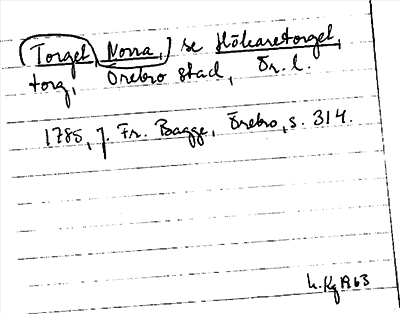 Torget, Norra, se Hökaretorget,
torg, Örebro stad, Ör. l.
1785, J. Fr. Bagge, Örebro, s. 314.